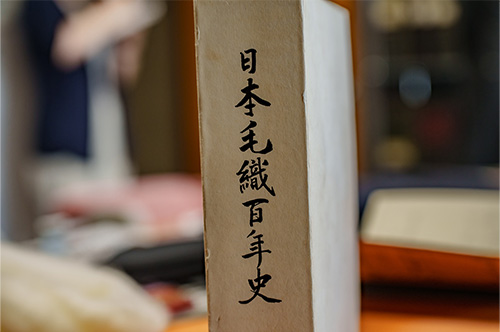 日本毛織百年史